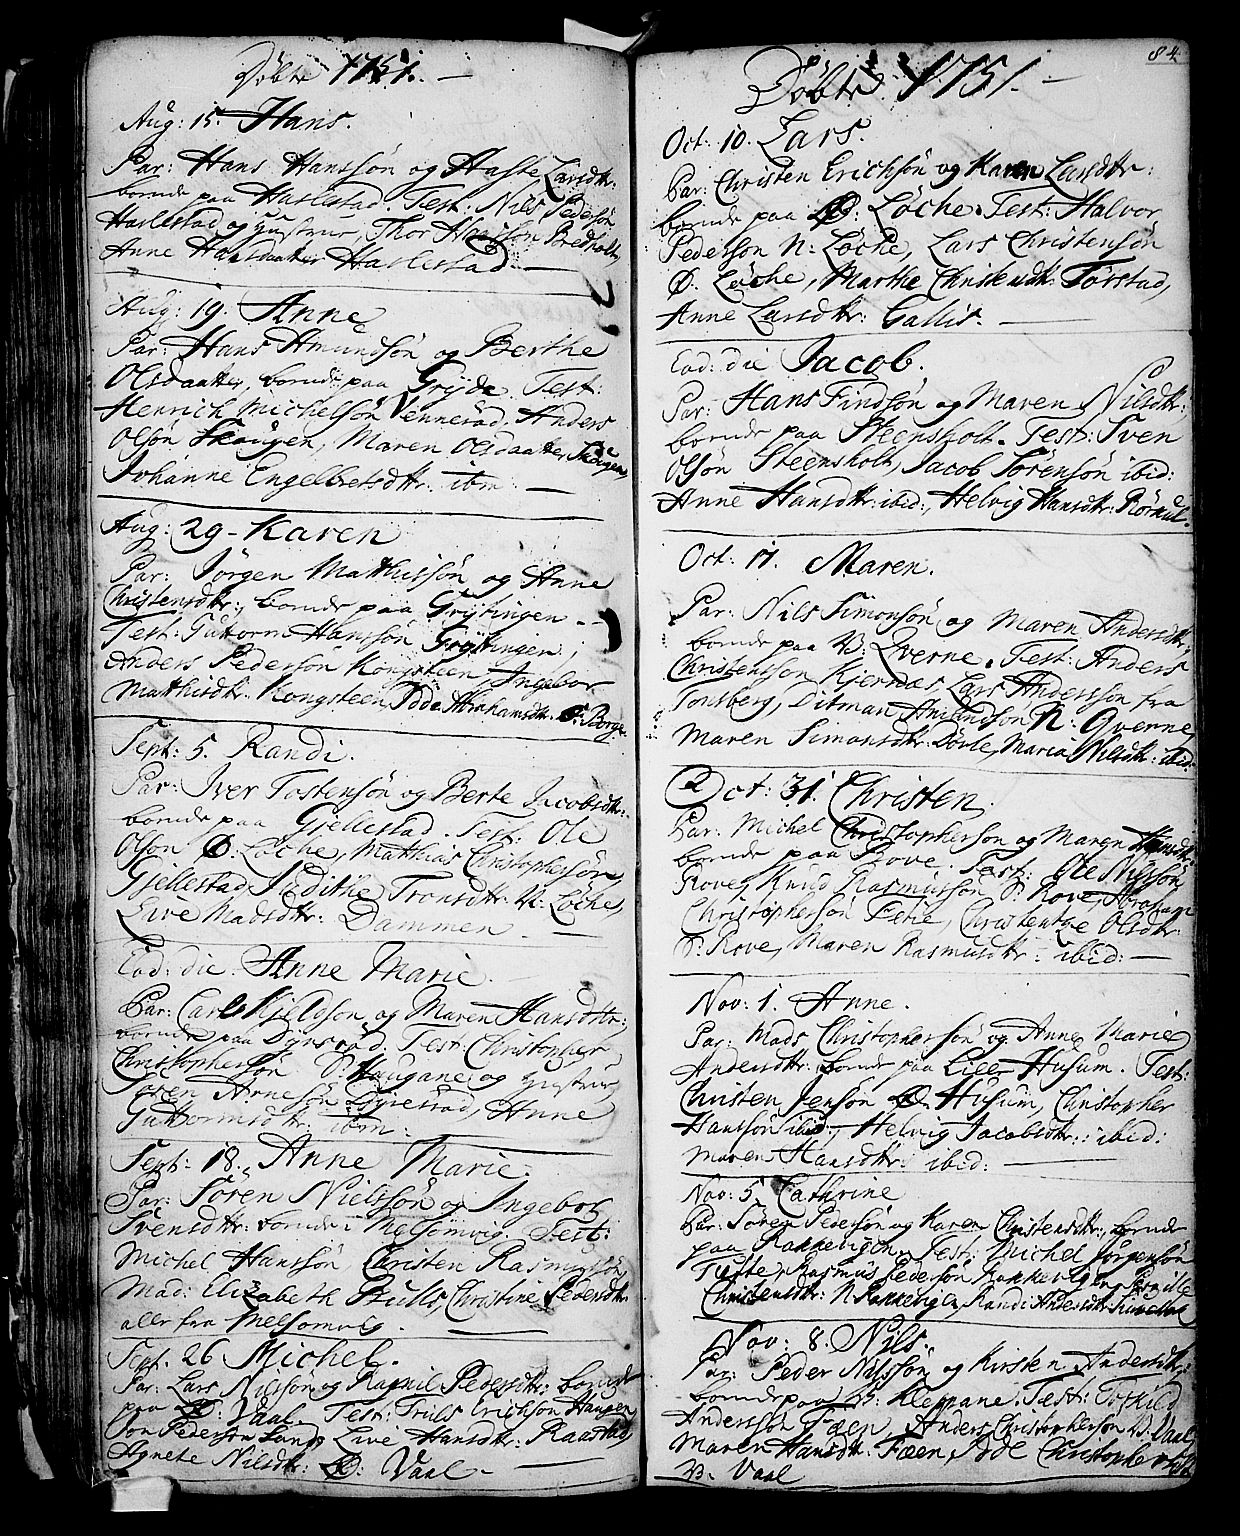 Döbte 1751. —
Aug: 15. Hans.
Par: Hans Hanssön og Aaste Larsdtr:
boende paa Haslestad. Test: Nils Pedersön
Haslestad og Hustrue, Thor Hanssön Bredholt,
Anne Hansdaatter Haslestad. —
Aug: 19. Anne
Par: Hans Amundsön og Berthe
Olsdaatter, boende paa Gryde. Test:
Henrich Michelsön Vennerød, Anders
Olsön Skougen, Maren Olsdaatter Skougen,
Johanne Engelbretsdtr: ibm —
Aug: 29 - Karen
Par: Jörgen Matthissön og Anne
Christensdtr: boende paa Grytingen —
Test: Guttorm Hanssön Grytingen,
Anders Pedersön Kongsteen, Ingebor
Matthisdtr: Kongsteen, Abrahamsdtr: Borge.
Sept: 5. Randi.
Par: Iver Tostensön og Berte Jacobsdtr:
boende paa Gjellestad. Test: Ole
Olsön Ø: Løche, Matthias Christophersön
Gjellestad, Tronsdtr: N: Løche,
Live Madsdtr: Dammen. —
Eod: die. Anne Marie.
Par: Carl Kjeldsön og Maren Hansdtr:
boende paa Test: Christopher
Christophersön Haugane og Hustrue,
Arnesön Anne
Guttormsdtr: ibm:
Sept: 18. Anne Marie.
Par: Sören Nielssön og Ingebor
Svensdtr: boende i Melsomvig. Test:
Michel Hanssön, Christen Rasmussön
Mad: Elizabeth Bulls, Christine Pedersdtr:
alle fra Melsomvig. —
Sept. 26 Michel.
Par: Lars Nilssön og Ragnil Pedersdtr: boende
paa Ø: Vaal. Test: Truls Erichsön Haugen,
Pedersön Live Hansdtr: Raastad,
Agnete Nilsdtr: Ø: Vaal —
84
Döbte 1751. —
Oct: 10. Lars.
Par: Christen Erichsön og Karen Larsdtr:
boende paa Ø: Løche. Test: Halvor
Pedersön N: Løche, Lars Christensön
Ø. Løche, Marthe Torstad,
Anne Larsdtr: Gallis. —
Eod: die Jacob.
Par: Hans Findsön og Maren Nilsdtr:
boende paa Steensholt. Test: Sven
Olsön Steensholt, Jacob Sörensön ibid:
Anne Hansdtr: ibid:, Helvig Hansdtr:
Oct: 17. Maren.
Par: Nils Simonsön og Maren Andersdtr:,
boende paa Qverne. Test: Anders
Christenssön Kjernæs, Lars Anderssön fra
Tonsberg, Ditman Amundsön N: Qverne
Maren Simonsdtr: Døvle, Maria Nilsdtr: ibid:
Oct: 31. Christen.
Par: Michel Christophersön og Maren Hansdtr:
boende paa Rove. Test: Ole Nilssön
Rove, Knud Rasmussön Rove, Abraham
Christophersön Christentze Olsdtr:
Rove, Maren Rasmusdtr: ibid: —
Nov: 1. Anne.
Par: Mads Christophersön og Anne Marie
Andersdtr: boende paa Lille Husum. Test:
Christen Jensön Ø. Husum, Christopher
Hanssön ibid:, Helvig Jacobsdtr: ibid:
Maren Hansdtr: ibid: —
Nov: 5. Cathrine
Par: Sören Pedersön og Karen Christensdtr:, boende
paa Rakkevigen, Test: Michel Jörgensön
Tufte, Rasmus Pedersön Rakkevigen,
Christensdtr: N Rakkevigen, Randi Andersdtr:
Nov: 8. Nils.
Par: Peder Nilssön og Kirsten Andersdtr:
boende paa Kleppane. Test: Torkild
Anderssön Fæen, Anders Christophersön V: Vaal
Maren Hansdtr: Fæen, Christophersdtr:
V: Vaal